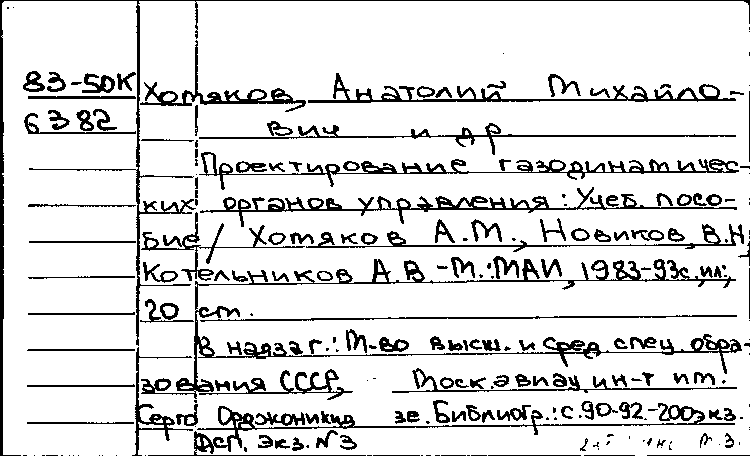 83-50К Хотяков, Анатолий Михайло-
6382 вич и др.
Проектирование газодинамичес-
ких органов управления: Учеб. посо-
бие / Хотяков А.М., Новиков, В.Н,
Котельников А.В.-М.:МАИ, 1983-93с, ил;
20 см.
В надзаг.: М-во высш. и сред. спец. обра-
зования СССР, Моск.авиац ин-т им.
Серго Орджоникид зе. Библиогр.: с.90-92.-200экз.
Деп. экз. №3